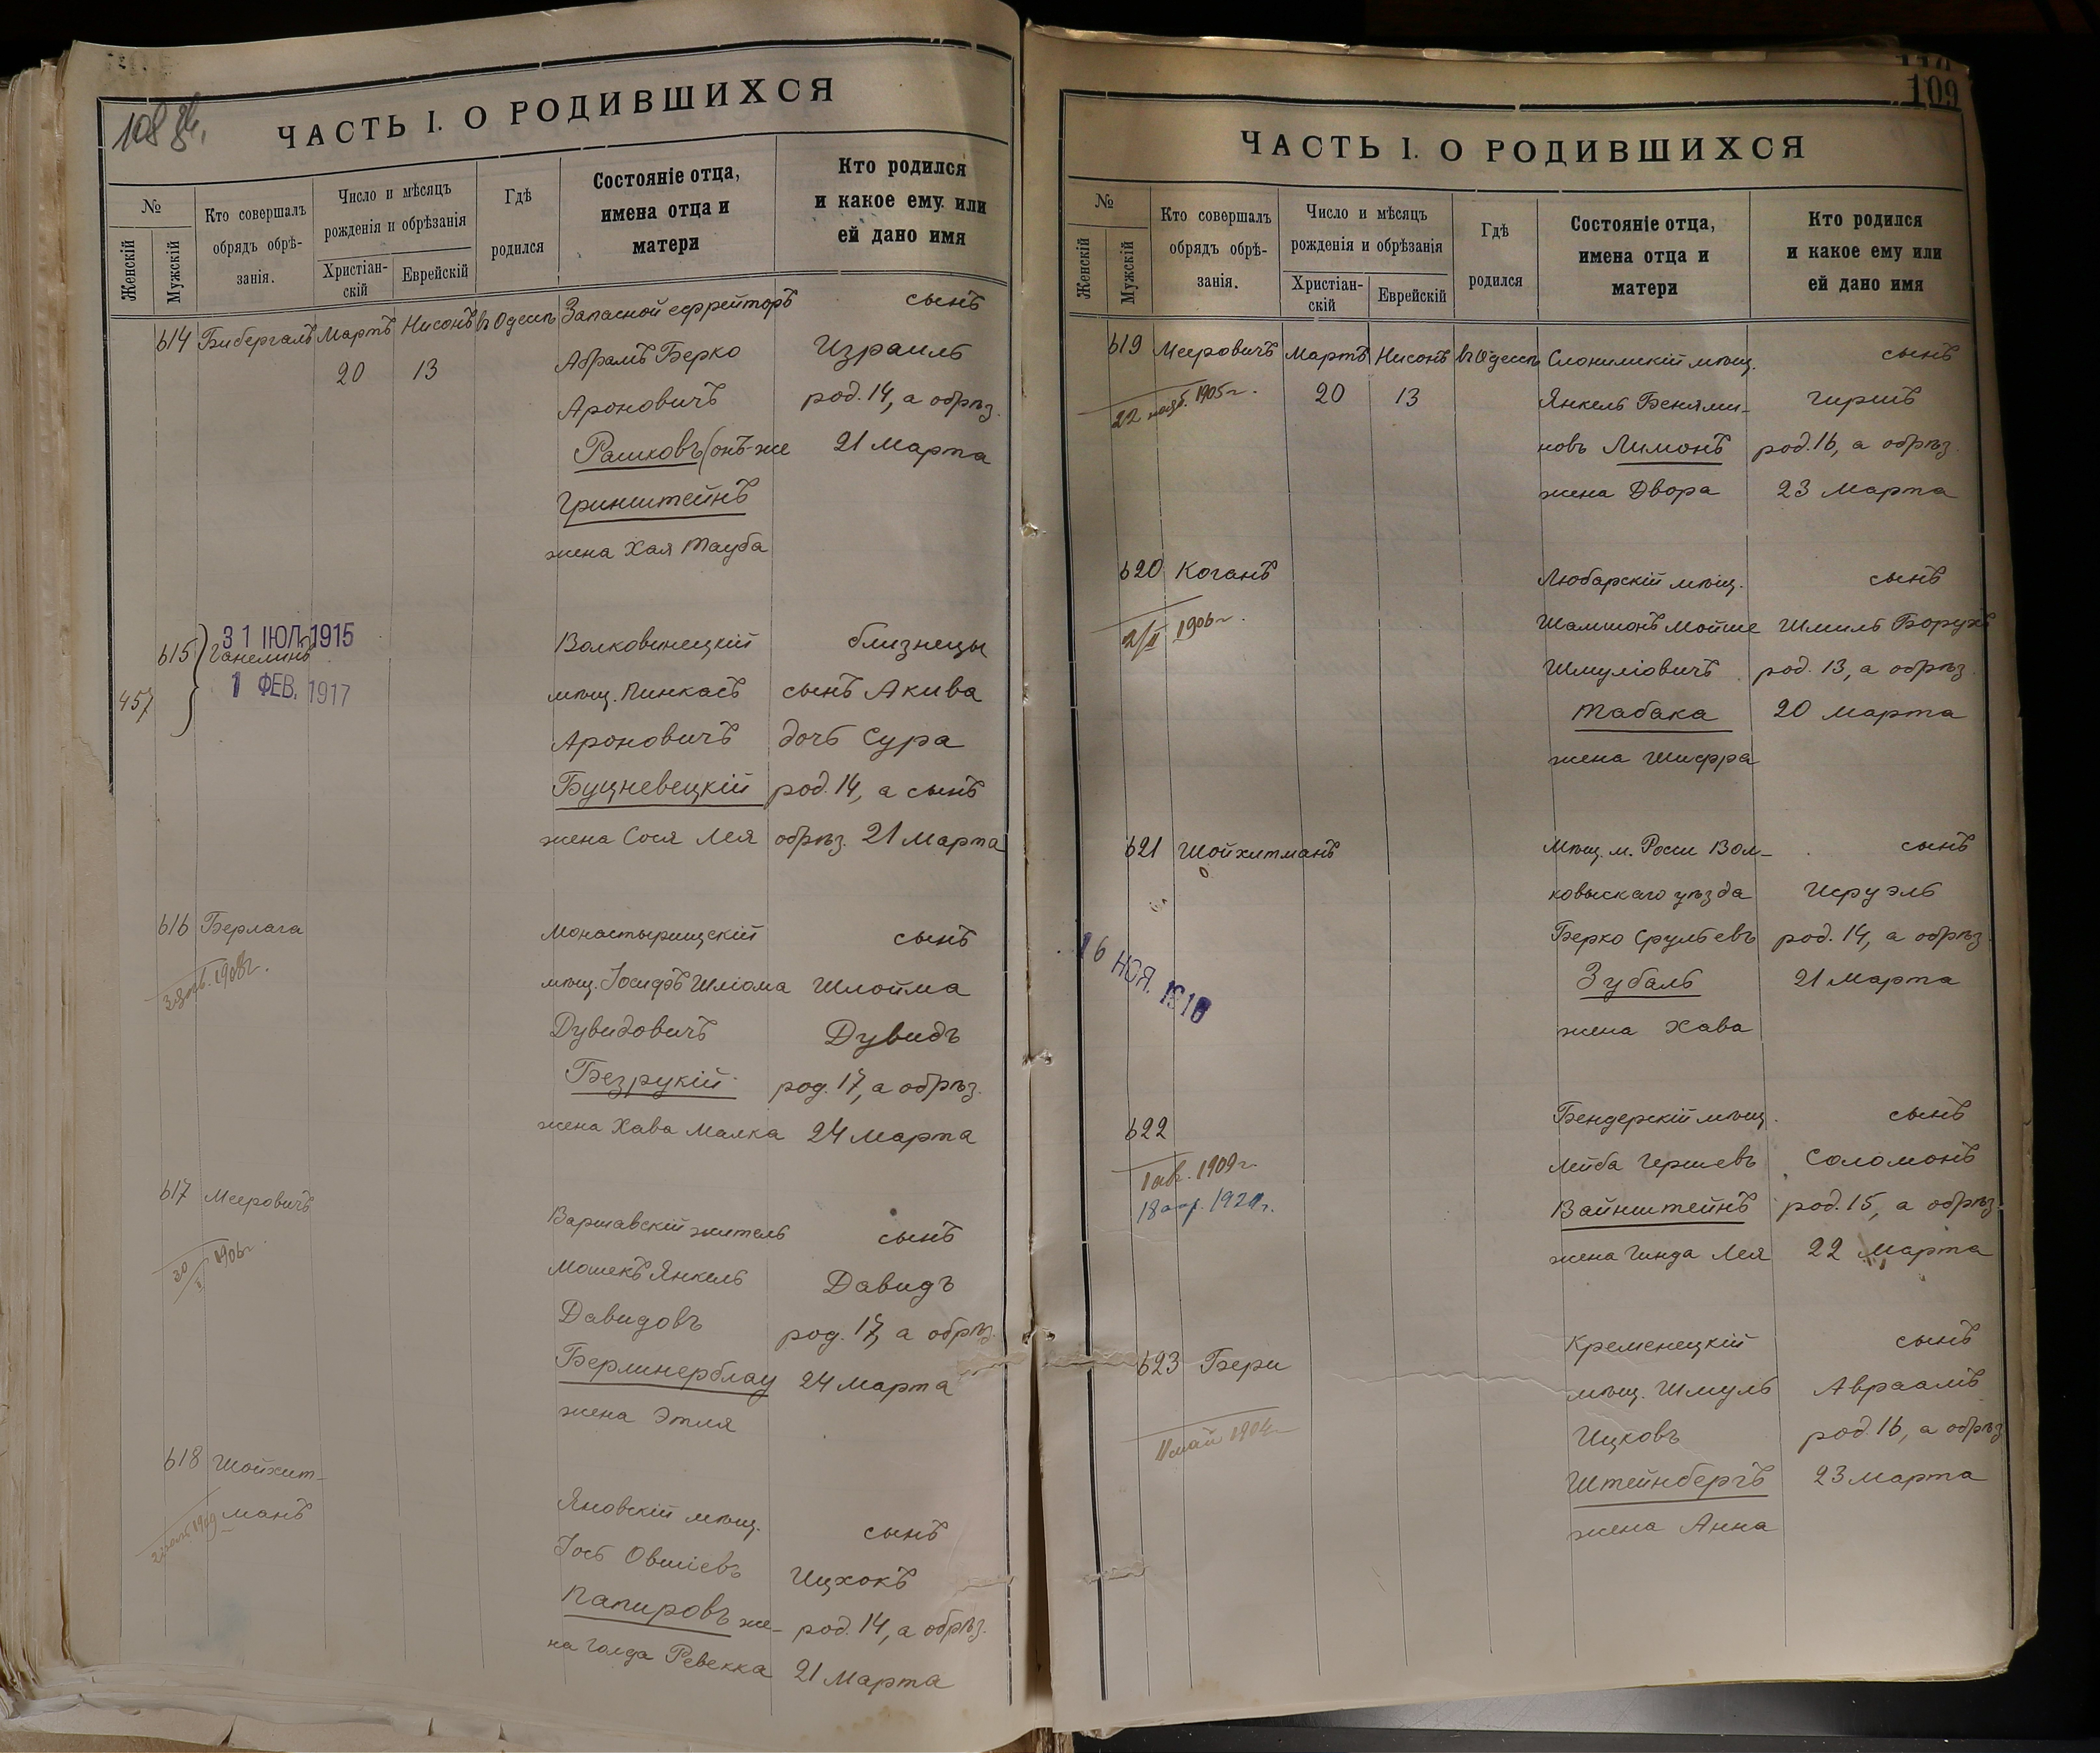 108 об.
ЧАСТЬ I. О РОДИВШИХСЯ
№
Женскій
Мужскій
Кто совершалъ
обрядъ обрѣ-
занія.
Число и мѣсяцъ
рожденія и обрѣзанія
Христіан-
скій
Еврейскій
Гдѣ
родился
Состояніе отца,
имена отца и
матери
Кто родился
и какое ему или
ей дано имя
614 Бибергалъ Мартъ Нисонъ въ Одессѣ Запасной ефрейторъ сынъ
20 13 Абрамъ Берко Израиль
Ароновичъ род. 14, а обрѣз.
Рашковъ (онъ-же 21 Марта
Гринштейнъ
жена Хая Тауба
31 ІЮЛ 1915
615 Ганелинъ Волковинецкій близнецы
1 ФЕВ. 1917
457 мѣщ. Пинкасъ сынъ Акива
Ароновичъ дочь Сура
Буцневецкій род. 14, а сынъ
жена Сося Лея обрѣз. 21 Марта
616 Берлага Монастырищскій сынъ
1908г. мѣщ. Іосифъ Шліома Шлойма
Дувидовичъ Дувидъ
Безрукій род. 17, а обрѣз.
жена Хава Малка 24 Марта
617 Мееровичъ Варшавскій житель сынъ
30 1906г. Мошекъ Янкель Давидъ
Давидовъ род. 17, а обрѣз.
Берлинерблау 24 Марта
жена Этля
618 Шойхет-
манъ Яновскій мѣщ. сынъ
1909 Іось Овшіевъ Ицхокъ
Папировъ же- род. 14, а обрѣз.
на Голда Ревекка 21 Марта
109
ЧАСТЬ I. О РОДИВШИХСЯ
№
Женскій
Мужскій
Кто совершалъ
обрядъ обрѣ-
занія.
Число и мѣсяцъ
рожденія и обрѣзанія
Христіан-
скій
Еврейскій
Гдѣ
родился
Состояніе отца,
имена отца и
матери
Кто родился
и какое ему или
ей дано имя
619 Мееровичъ Мартъ Нисонъ въ Одессѣ Слонимскій мѣщ. сынъ
22 нояб. 1905г. 20 13 Янкель Бенями- Гиршъ
новъ Лимонъ род. 16, а обрѣз.
жена Двора 23 Марта
620 Коганъ Любарскій мѣщ. сынъ
2/II 1906г. Шамшонъ Мойше Шмиль Борухъ
Шмуліовичъ род. 13, а обрѣз.
Табака 20 Марта
жена Шифра
621 Шойхетманъ Мѣщ. м. Росси Вол- сынъ
ковыскаго уѣзда Исруэль
16 НОЯ. 1916 Берко Срульевъ род. 14, а обрѣз.
Зубаль 21 Марта
жена Хава
622 Бендерскій мѣщ. сынъ
1 авг. 1909г. Лейба Гершевъ Соломонъ
18 апр. 1920г. Вайнштейнъ род. 15, а обрѣз.
жена Гинда Лея 22 Марта
623 Бери Кременецкій сынъ
мѣщ. Шмуль Авраамъ
11 май 1904г. Ицковъ род. 16, а обрѣз.
Штейнбергъ 23 Марта
жена Анна